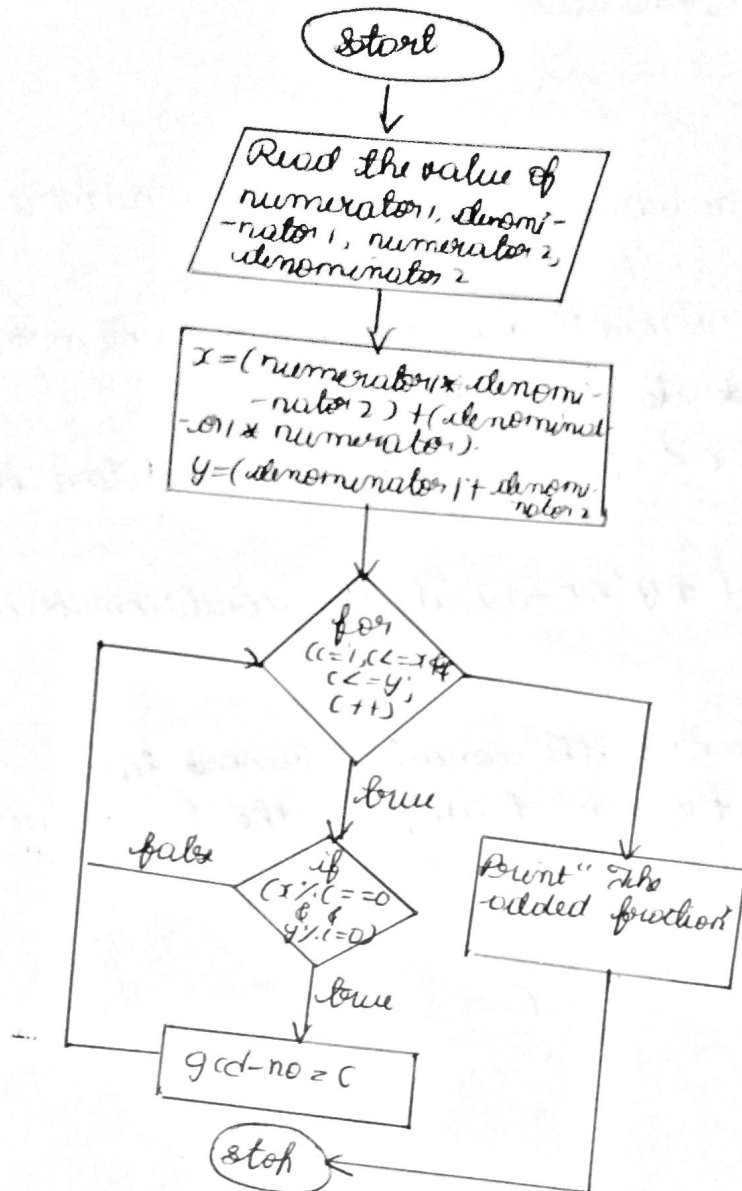 start
Read the value of
numerator1, denomi-
-nator1, numerator2,
denominator2
x=(numerator1* denomi-
-nator2)+(denominat
-or1* numerator).
y=(denominator1+ denomi-
nator2
for
(c=1,c<=x&&
c<=y;
c++)
true
false
if
(x%c==0
&&
y%c=0)
Print" The
added fraction"
true
gcd-no=c
stop